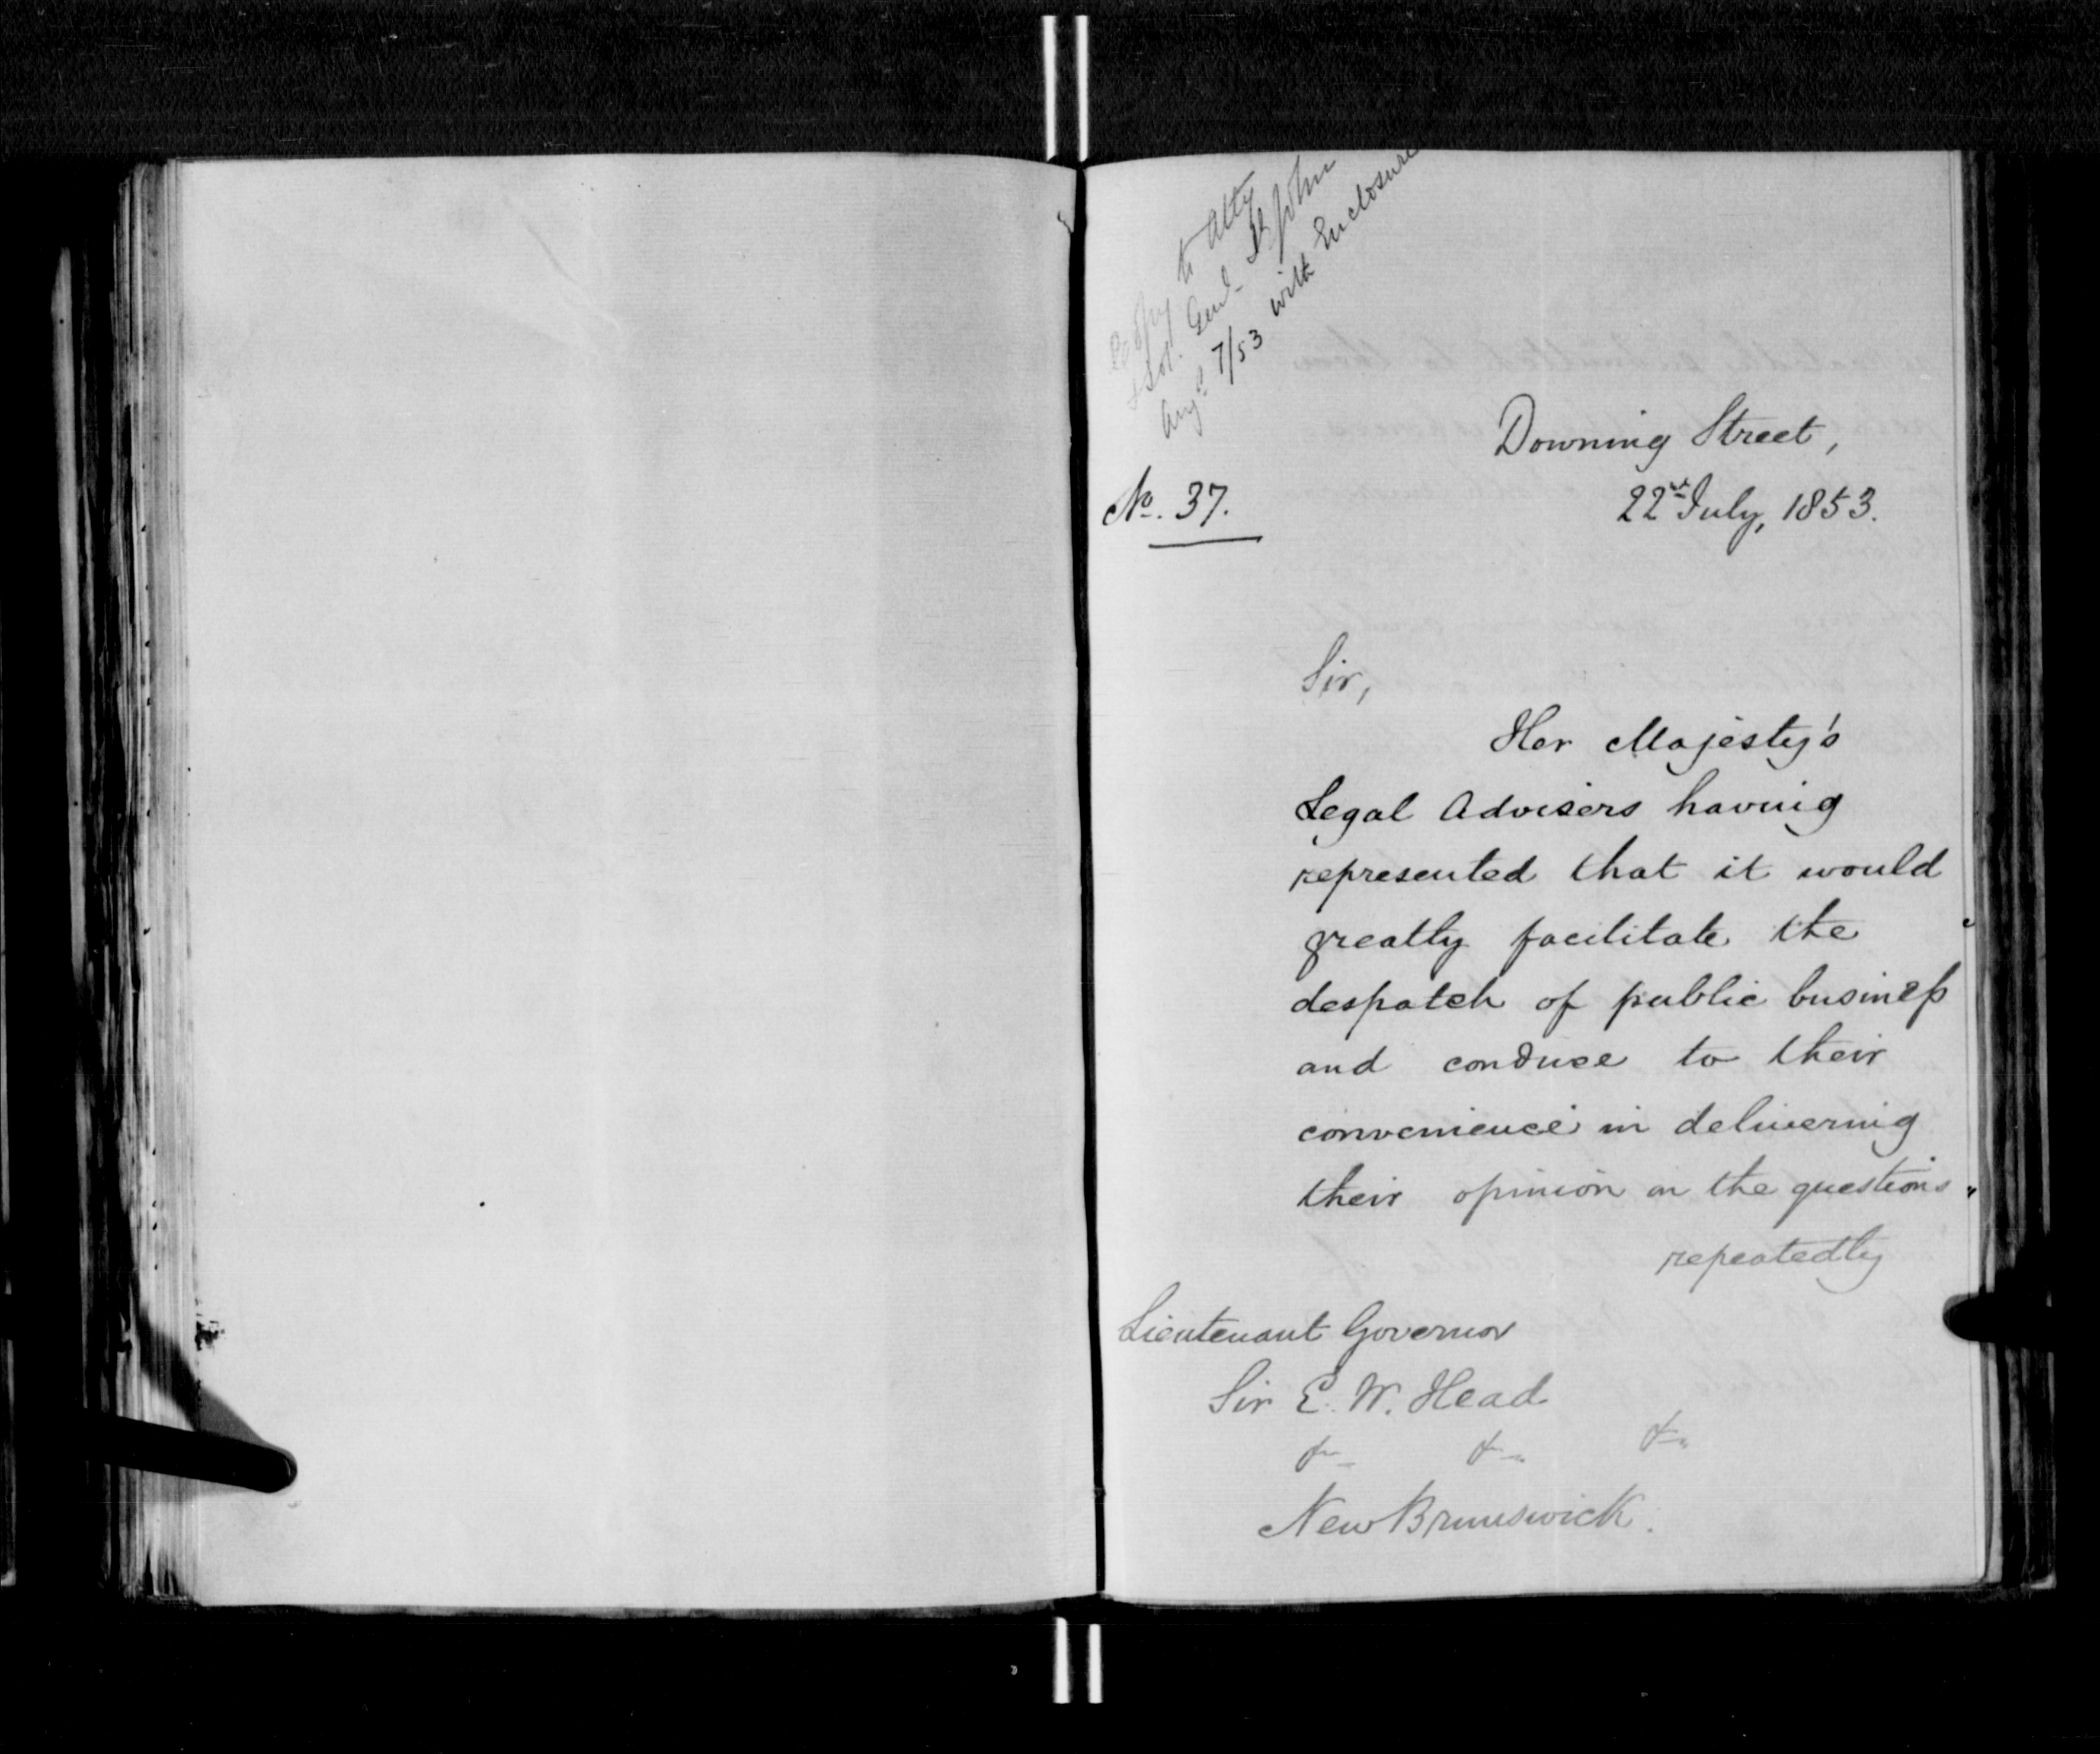 Copy to Atty
& Sol. Genl. St John
Augt 7/53 with Enclosure
Downing Street,
No. 37.
22nd July, 1853.
Sir,
Her Majesty's
Legal Advisers having
represented that it would
greatly facilitate the
despatch of public business
and conduce to their
convenience in delivering
their opinion on the questions
repeatedly
Lieutenant Governor
Sir E. W. Head
&c. &c. &c.
New Brunswick.